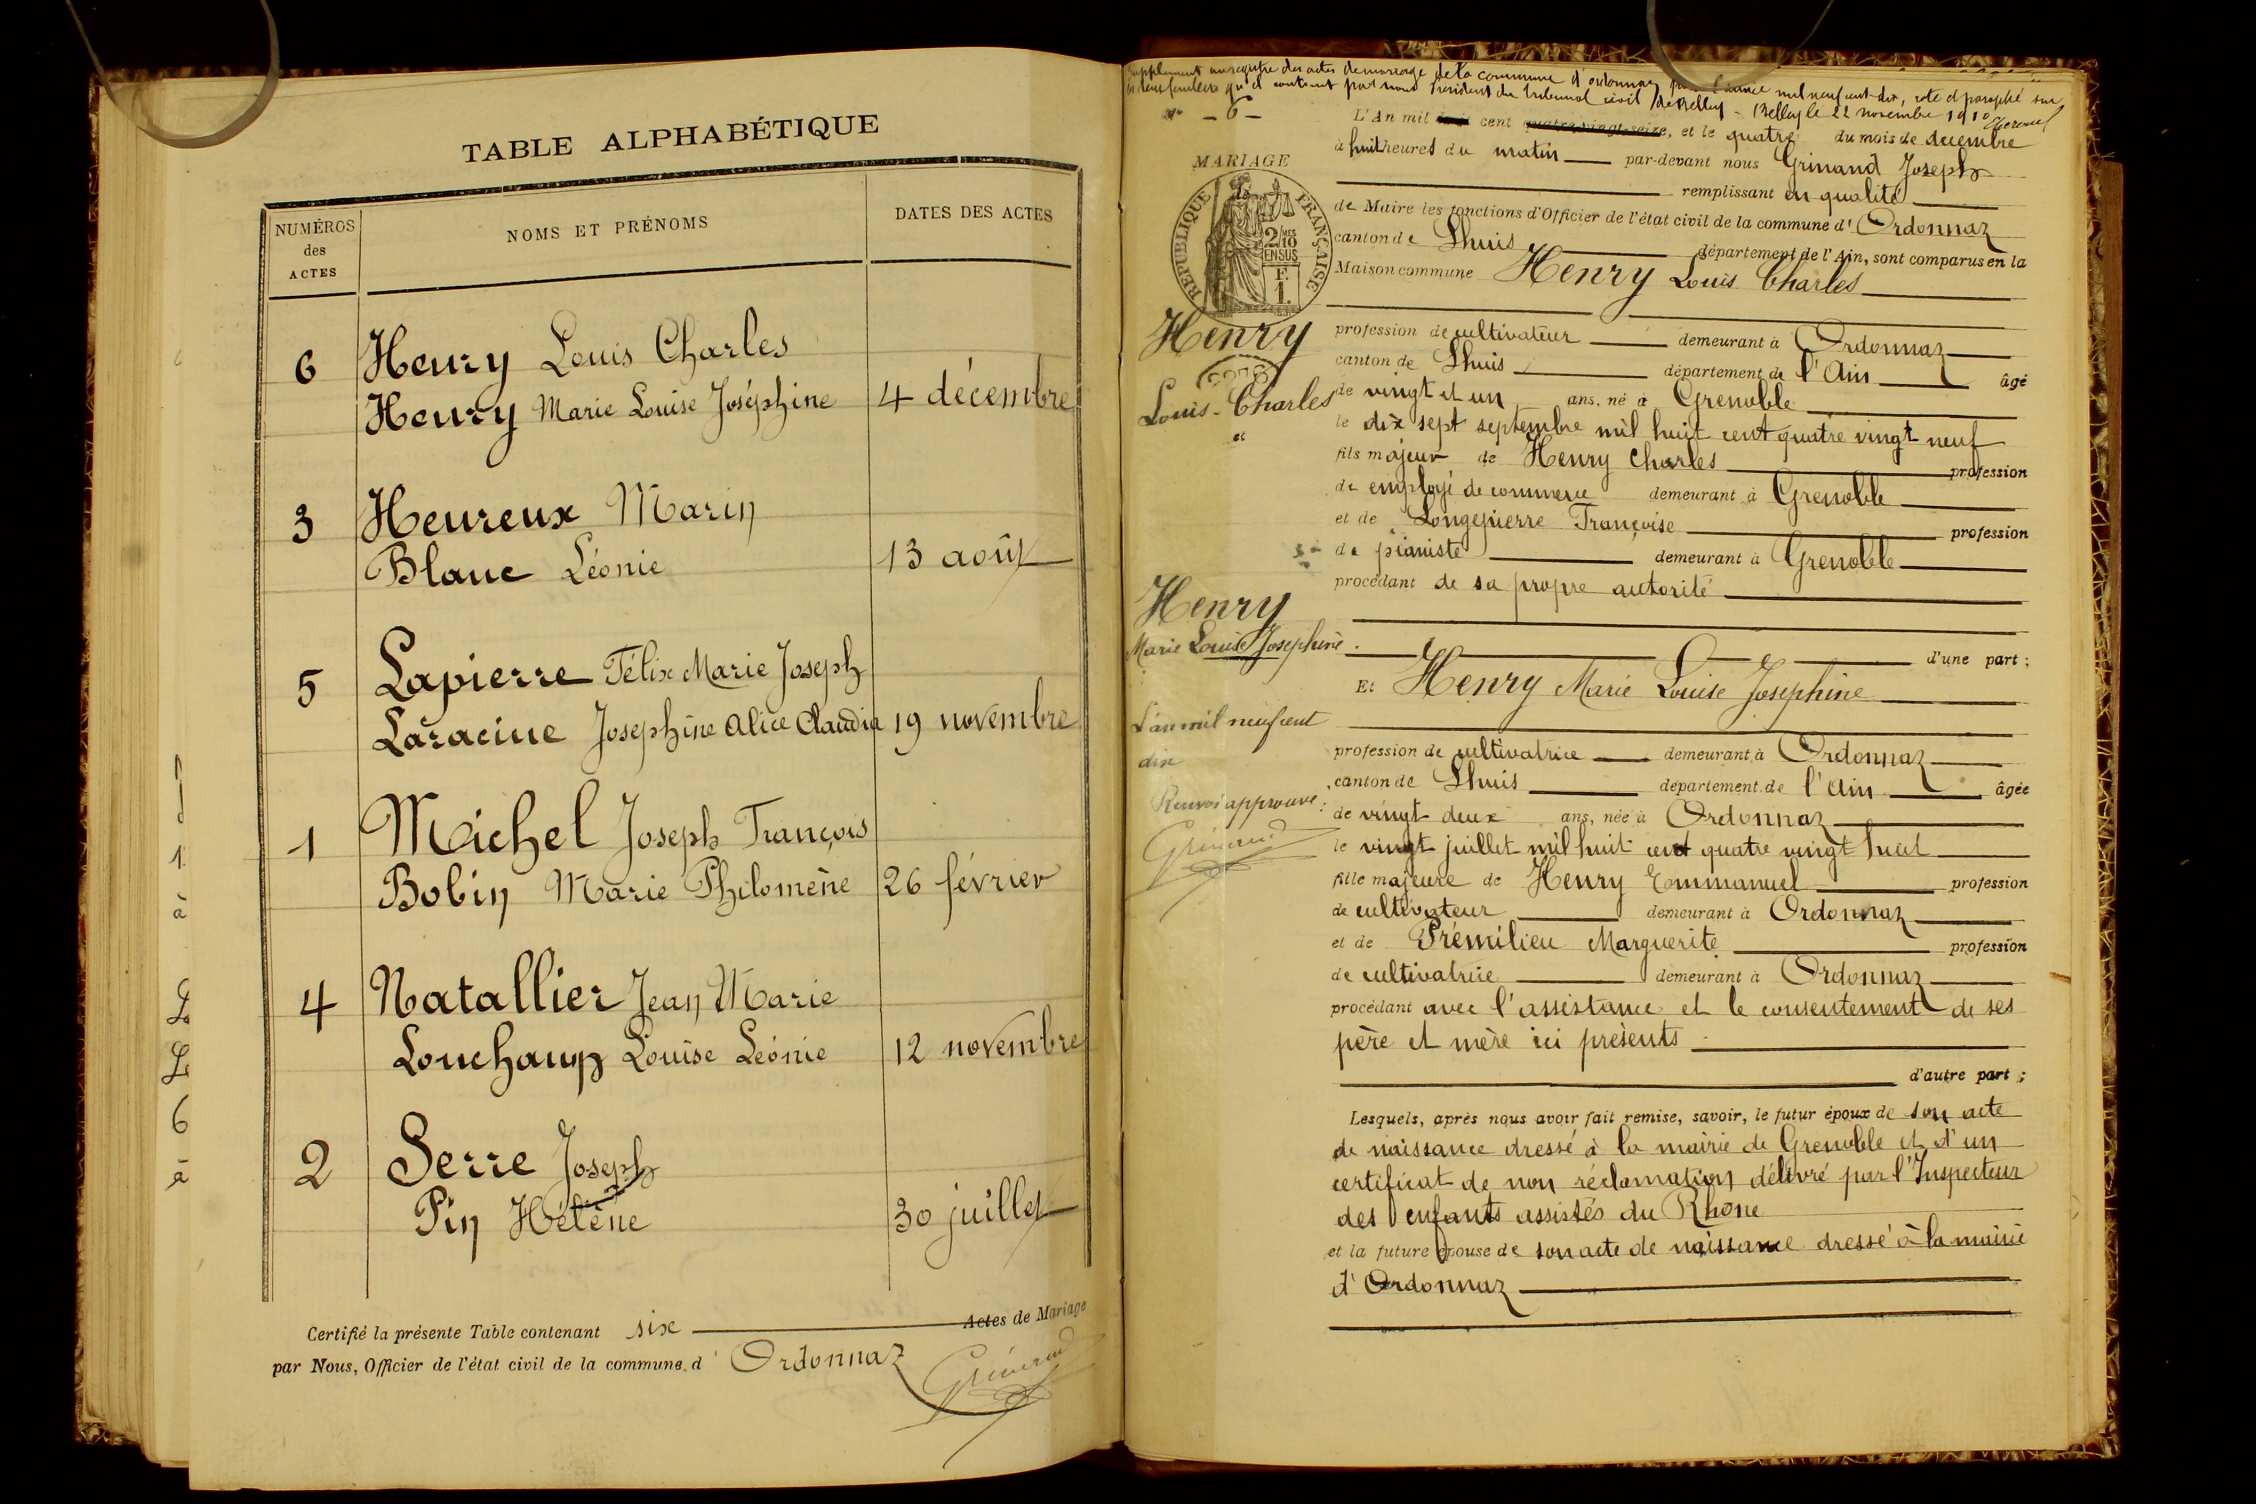 TABLE ALPHABÉTIQUE
NUMÉROS des ACTES
NOMS ET PRÉNOMS
DATES DES ACTES
6 Henry Louis Charles
Henry Marie Louise Joséphine 4 décembre
3 Heureux Marin
Blanc Léonie 13 août
5 Lapierre Félix Marie Joseph
Laracine Josephine Alice Claudia 19 novembre
1 Michel Joseph François
Bobin Marie Philomène 26 février
4 Natallier Jean Marie
Lonchamp Louise Léonie 12 novembre
2 Serre Joseph
Pin Hélène 30 juillet
Certifié la présente Table contenant six Actes de Mariage
par Nous, Officier de l'état civil de la commune d' Ordonnaz
Grinand
Supplément au registre des actes de mariage de la commune d'Ordonnaz pour l'année mil neuf cent dix, coté et paraphé sur
les deux feuillets qu'il contient par nous Président du Tribunal civil de Belley - Belley le 22 novembre 1910
N° - 6 -
MARIAGE
RÉPUBLIQUE FRANÇAISE
2/10
EN SUS
F.
1.
Henry
Louis-Charles
et
Henry
Marie Louise Josephine
L'an mil neuf cent
dix
Renvoi approuvé :
Grinand
L'An mil huit cent quatre-vingt-seize, et le quatre du mois de decembre
à huit heures du matin par-devant nous Grinand Joseph
remplissant en qualité
de Maire les fonctions d'Officier de l'état civil de la commune d' Ordonnaz
canton de Lhuis département de l'Ain, sont comparus en la
Maison commune Henry Louis Charles
profession de cultivateur demeurant à Ordonnaz
canton de Lhuis département de l'Ain âgé
de vingt et un ans, né à Grenoble
le dix sept septembre mil huit cent quatre vingt neuf
fils majeur de Henry Charles profession
de employé de commerce demeurant à Grenoble
et de Longepierre Françoise profession
de pianiste demeurant à Grenoble
procédant de sa propre autorité
d'une part ;
Et Henry Marie Louise Josephine
profession de cultivatrice demeurant à Ordonnaz
canton de Lhuis département de l'Ain âgée
de vingt deux ans, née à Ordonnaz
le vingt juillet mil huit cent quatre vingt huit
fille majeure de Henry Emmanuel profession
de cultivateur demeurant à Ordonnaz
et de Prémilieu Marguerite profession
de cultivatrice demeurant à Ordonnaz
procédant avec l'assistance et le consentement de ses
père et mère ici présents
d'autre part ;
Lesquels, après nous avoir fait remise, savoir, le futur époux de son acte
de naissance dressé à la mairie de Grenoble et d'un
certificat de non réclamation délivré par l'Inspecteur
des enfants assistés du Rhône
et la future épouse de son acte de naissance dressé à la mairie
d'Ordonnaz